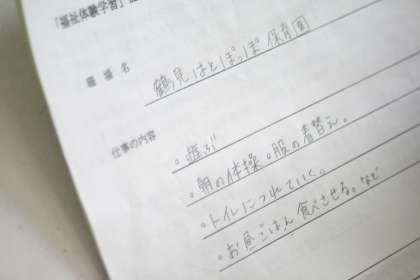 「福祉体験学習」
職場名
鶴見はとぽっぽ保育園
仕事の内容
・遊ぶ
・朝の体操 ・服の着替え。
・トイレにつれていく。
・お昼ごはん食べさせる。など